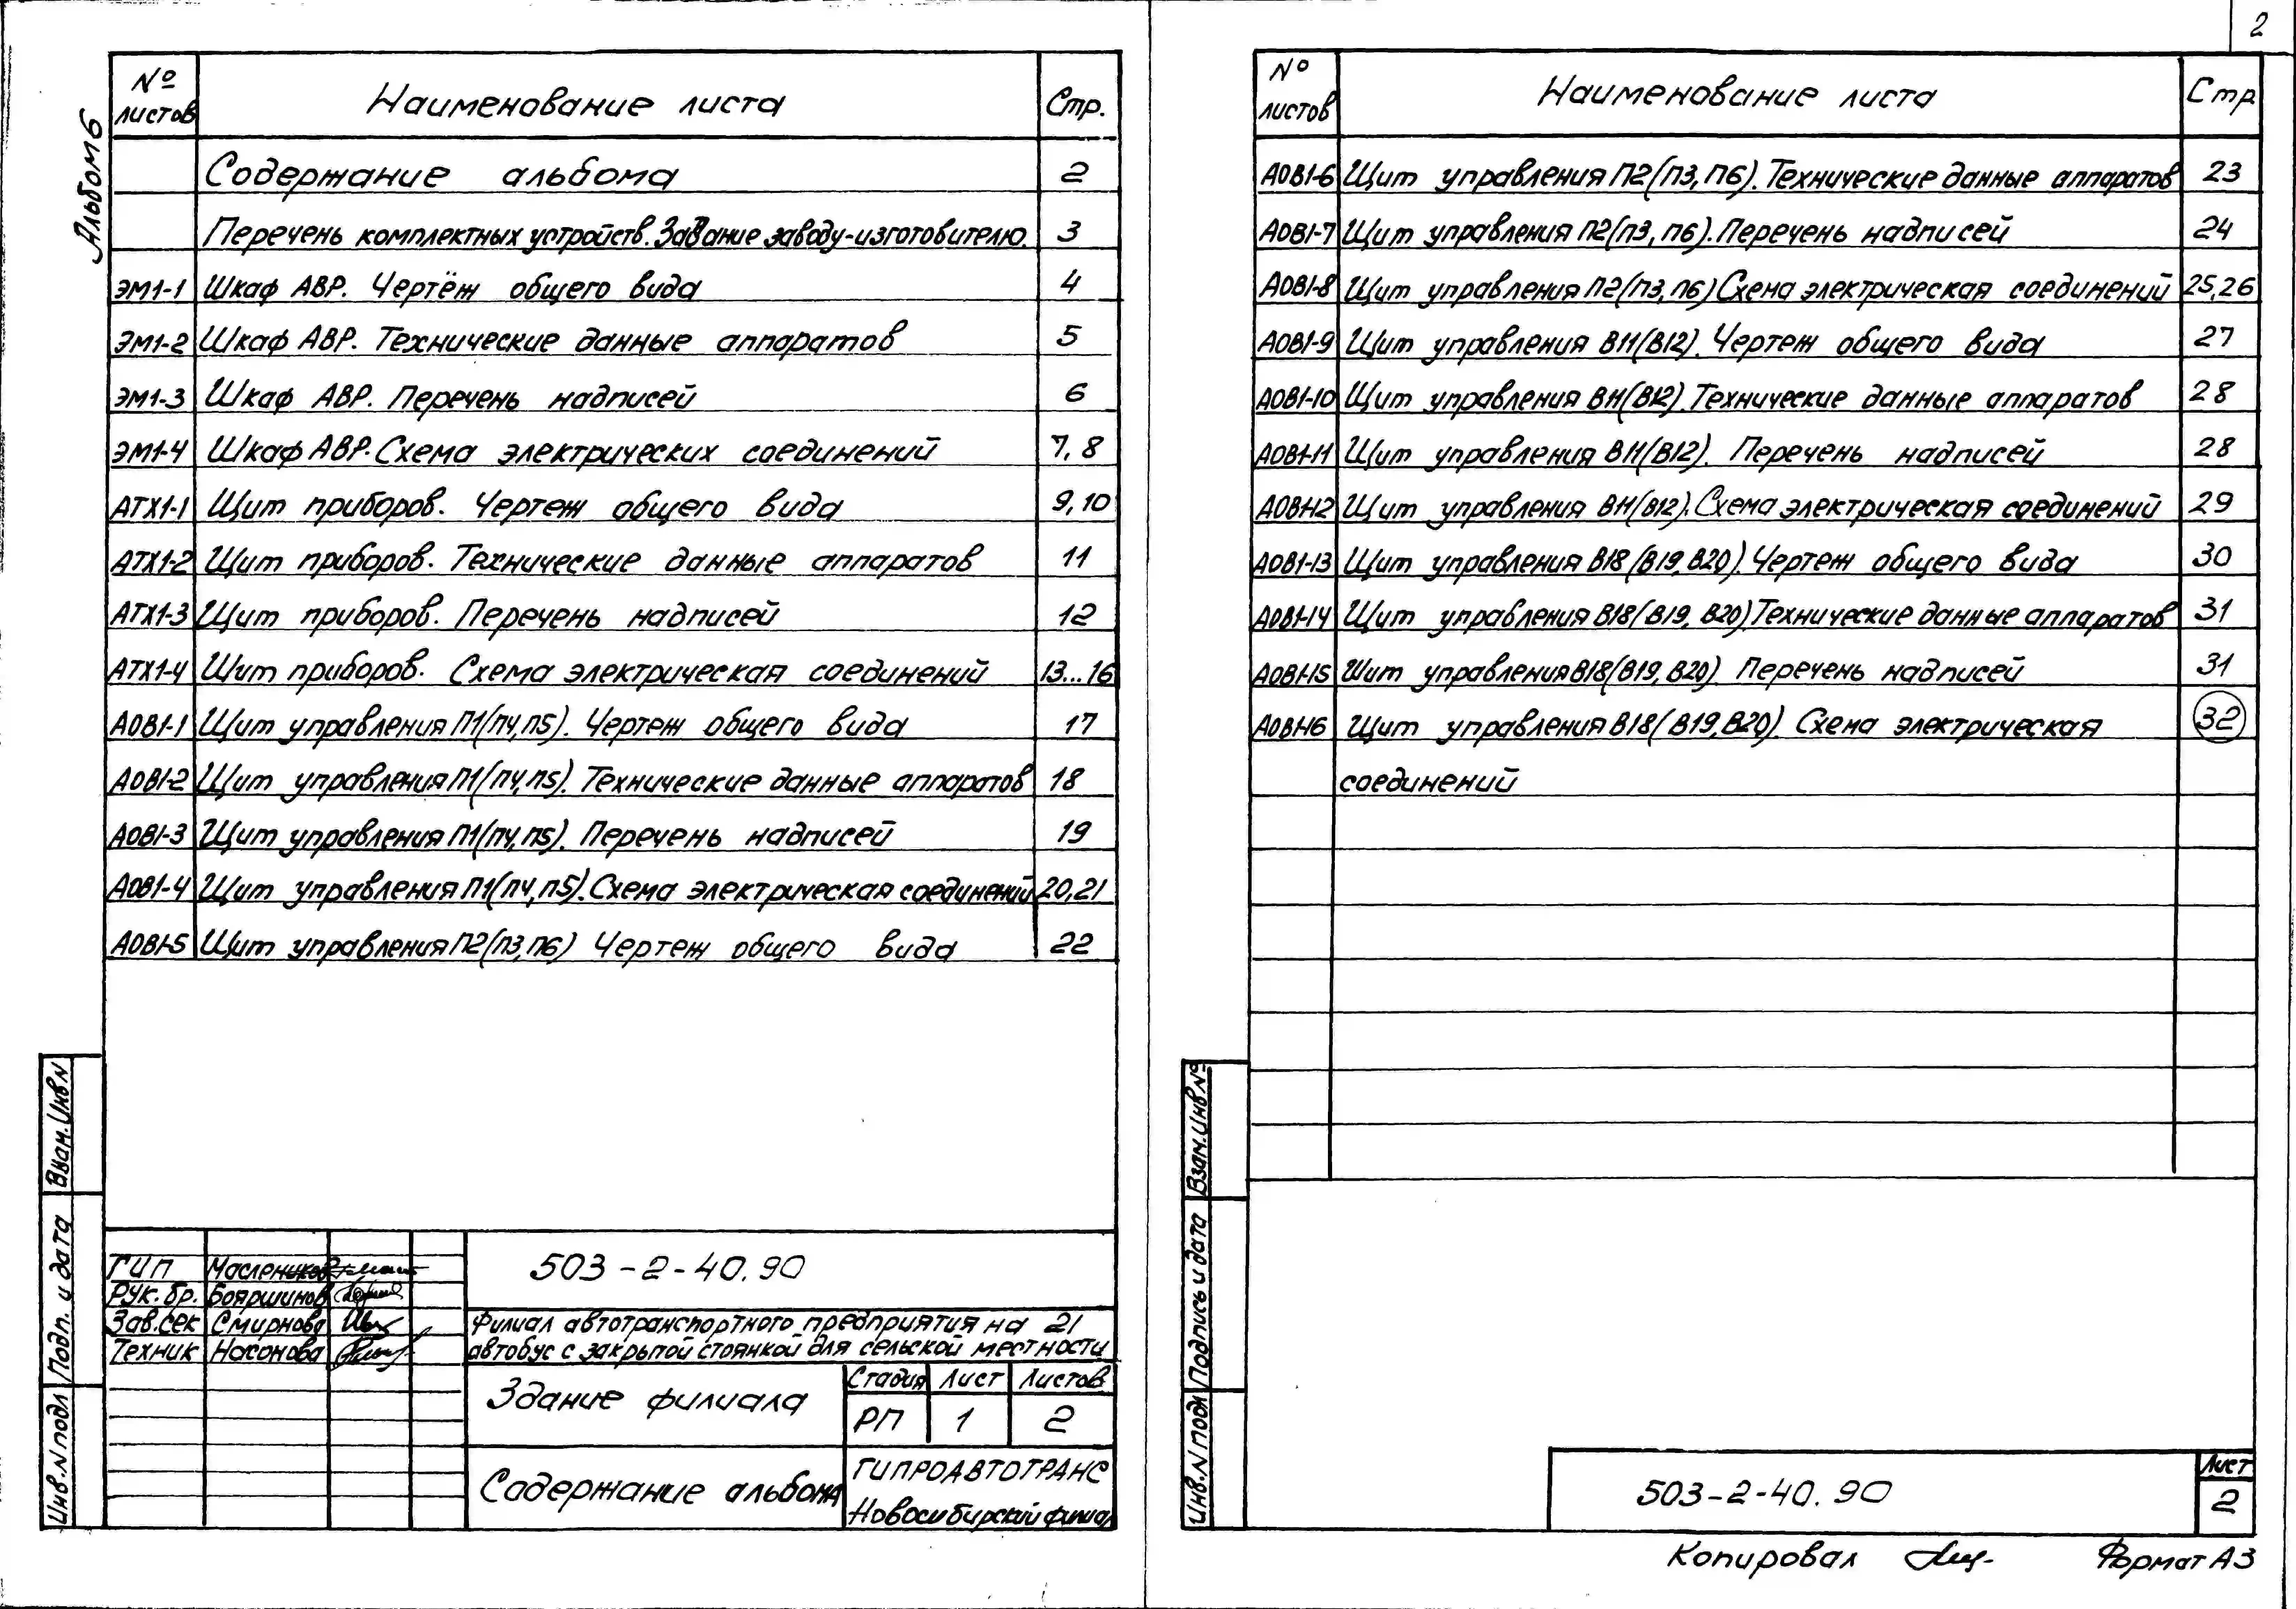 2
Альбом 6
№ листов Наименование листа Стр.
Содержание альбома 2
Перечень комплектных устройств. Задание заводу-изготовителю. 3
ЭМ1-1 Шкаф АВР. Чертёж общего вида 4
ЭМ1-2 Шкаф АВР. Технические данные аппаратов 5
ЭМ1-3 Шкаф АВР. Перечень надписей 6
ЭМ1-4 Шкаф АВР. Схема электрических соединений 7, 8
АТХ1-1 Щит приборов. Чертеж общего вида 9, 10
АТХ1-2 Щит приборов. Технические данные аппаратов 11
АТХ1-3 Щит приборов. Перечень надписей 12
АТХ1-4 Щит приборов. Схема электрическая соединений 13...16
АОВ1-1 Щит управления П1(П4, П5). Чертеж общего вида 17
АОВ1-2 Щит управления П1(П4, П5). Технические данные аппаратов 18
АОВ1-3 Щит управления П1(П4, П5). Перечень надписей 19
АОВ1-4 Щит управления П1(П4, П5). Схема электрическая соединений 20, 21
АОВ1-5 Щит управления П2(П3, П6) Чертеж общего вида 22
Взам. Инв N
Подп. и дата
Инв. N подл
ГИП Маслеников
Рук. бр. Бояршинов
Зав. сек Смирнова
Техник Насонова
503-2-40.90
Филиал автотранспортного предприятия на 21
автобус с закрытой стоянкой для сельской местности
Здание филиала
Стадия Лист Листов
РП 1 2
Содержание альбома
ГИПРОАВТОТРАНС
Новосибирский филиал
№ листов Наименование листа Стр
АОВ1-6 Щит управления П2(П3, П6). Технические данные аппаратов 23
АОВ1-7 Щит управления П2(П3, П6). Перечень надписей 24
АОВ1-8 Щит управления П2(П3, П6) Схема электрическая соединений 25, 26
АОВ1-9 Щит управления В11(В12). Чертеж общего вида 27
АОВ1-10 Щит управления В11(В12). Технические данные аппаратов 28
АОВ1-11 Щит управления В11(В12). Перечень надписей 28
АОВ1-12 Щит управления В11(В12). Схема электрическая соединений 29
АОВ1-13 Щит управления В18(В19, В20). Чертеж общего вида 30
АОВ1-14 Щит управления В18(В19, В20). Технические данные аппаратов 31
АОВ1-15 Щит управления В18(В19, В20). Перечень надписей 31
АОВ1-16 Щит управления В18(В19, В20). Схема электрическая 32
соединений
Взам. Инв. №
Подпись и дата
Инв. N подл
503-2-40.90
Лист
2
Копировал
Формат А3